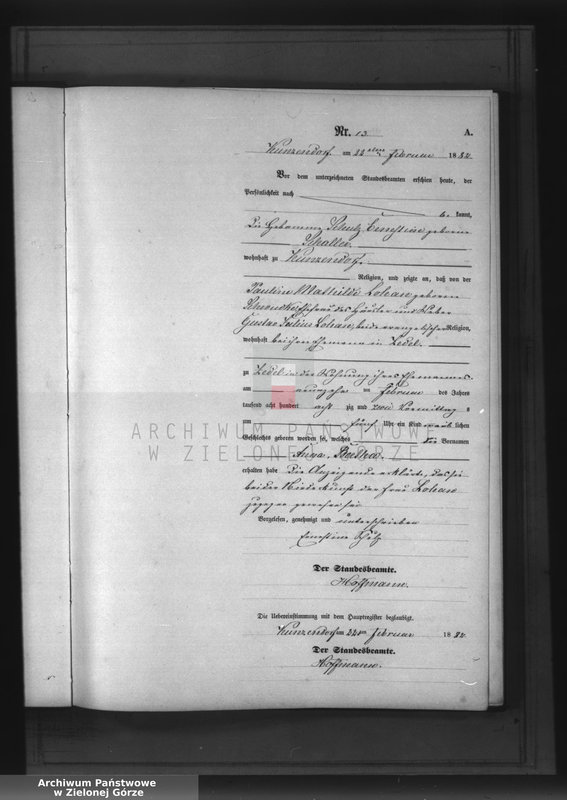 Nr. 13 A.
Kunzendorf am 22ten Februar 1882.
Vor dem unterzeichneten Standesbeamten erschien heute, der
Persönlichkeit nach
kannt,
Die Hebamme Ernestine geborene
wohnhaft zu Kunzendorf
Religion, und zeigte an, daß von der
Pauline Mathilde Lohan geborene
Ehefrau des Häusler und Weber
Gustav Julius Lohan, beide evangelischer Religion,
wohnhaft bei ihrem Ehemanne in Zedel
zu Zedel in der Wohnung ihres Ehemannes
am neunzehn ten Februar des Jahres
tausend acht hundert acht zig und zwei Vormittag s
fünf Uhr ein Kind weib lichen
Geschlechts geboren worden sei, welches die Vornamen
Anna Bertha
erhalten habe. Die Anzeigende erklärte, daß sie
bei der Niederkunft der Frau Lohan
zugegen gewesen sei
Vorgelesen, genehmigt und unterschrieben
Ernestine
Der Standesbeamte.
Hoffmann.
Die Uebereinstimmung mit dem Hauptregister beglaubigt.
Kunzendorf am 22ten Februar 1882.
Der Standesbeamte.
Hoffmann.
ARCHIWUM PAŃSTWOWE
W ZIELONEJ GÓRZE
Archiwum Państwowe
w Zielonej Górze